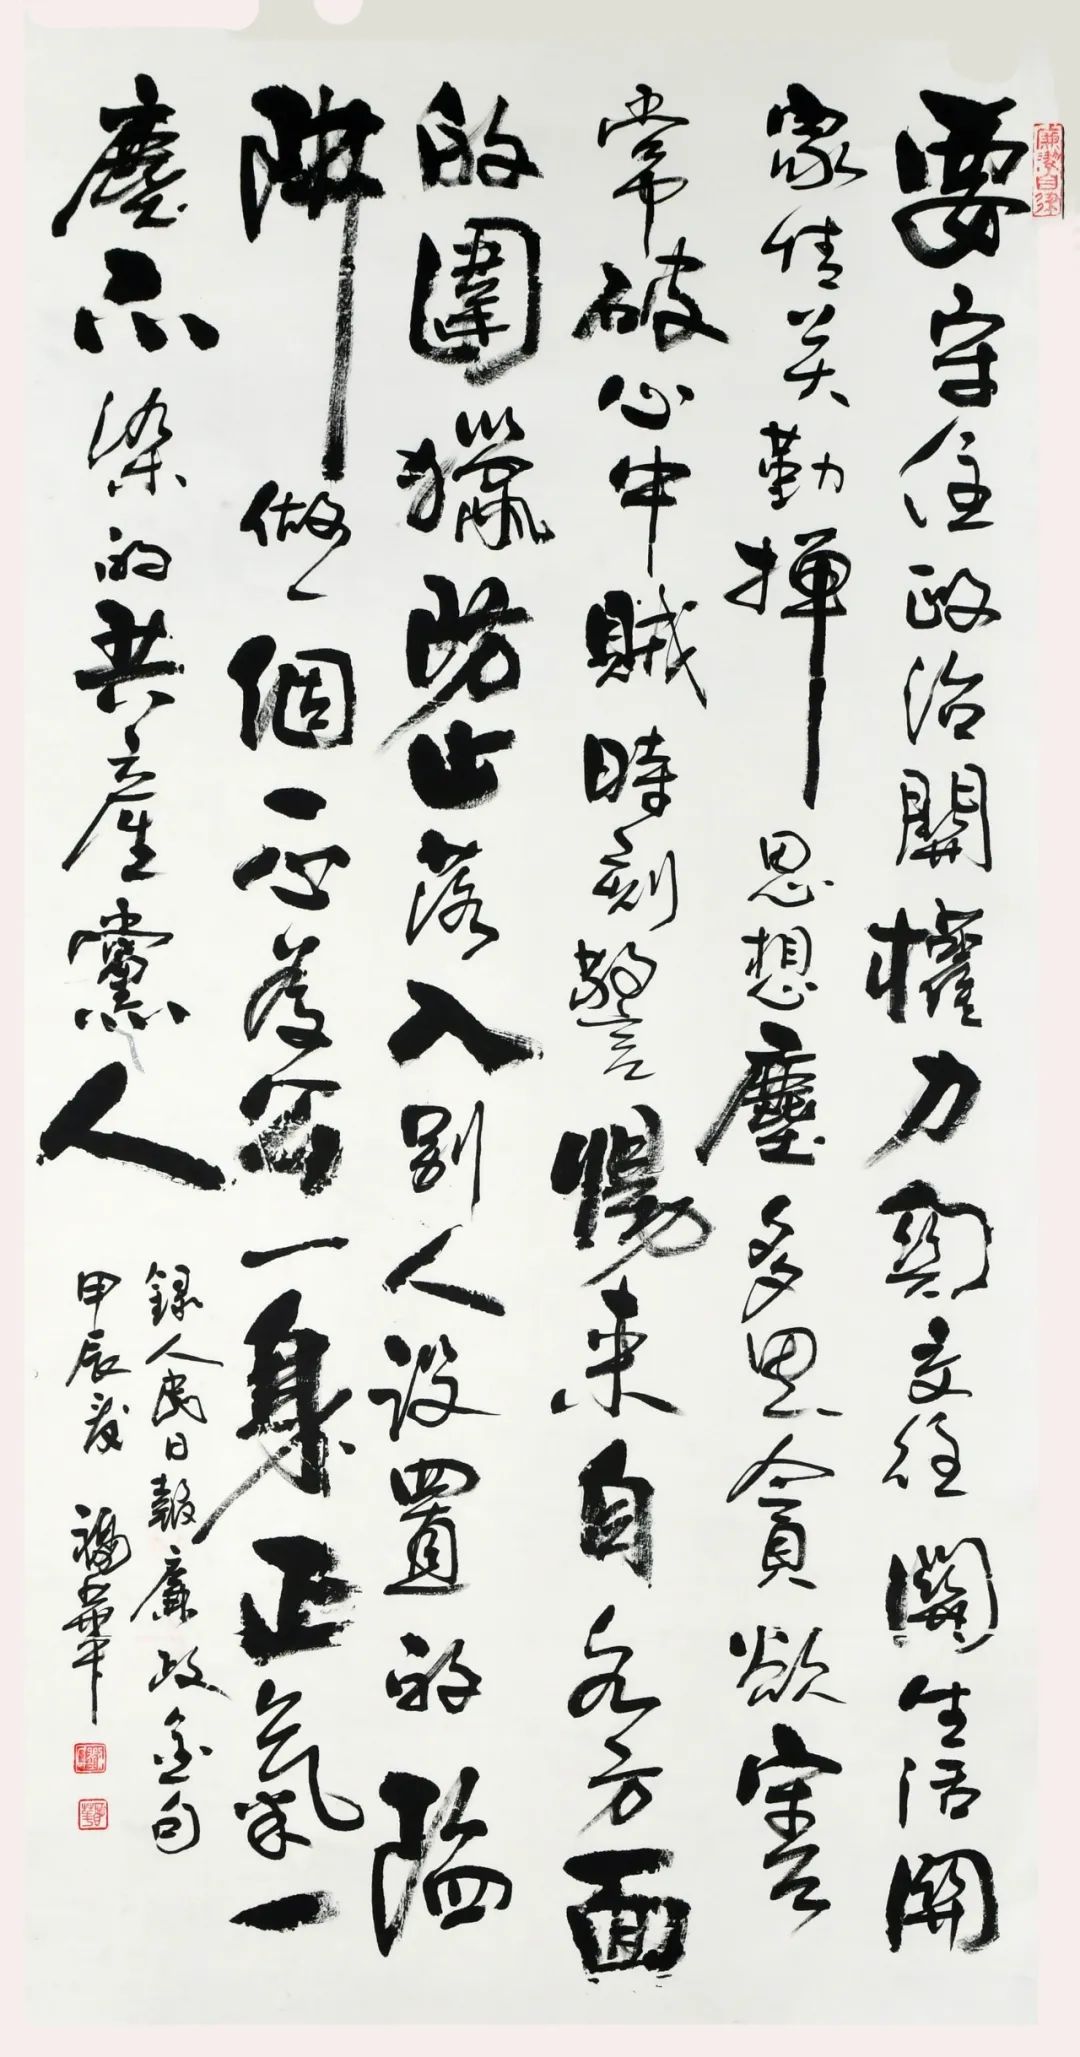 廉潔自律
要守住政治關權力關交往關生活關
家情关勤撣思想塵多思貪慾害
常破心中賊時刻警惕來自各方面
的圍獵防止落入別人設置的陷
阱做一個一心為公一身正氣一
塵不染的共產黨人
錄人民日報廉政金句
甲辰夏 福華